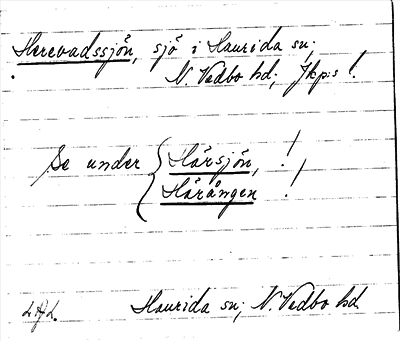 Herevadssjön, sjö i Haurida sn;
N. Vedbo hd; Jkp:s l.
Se under { Härsjön, !
Härången !
Haurida sn; N. Vedbo hd